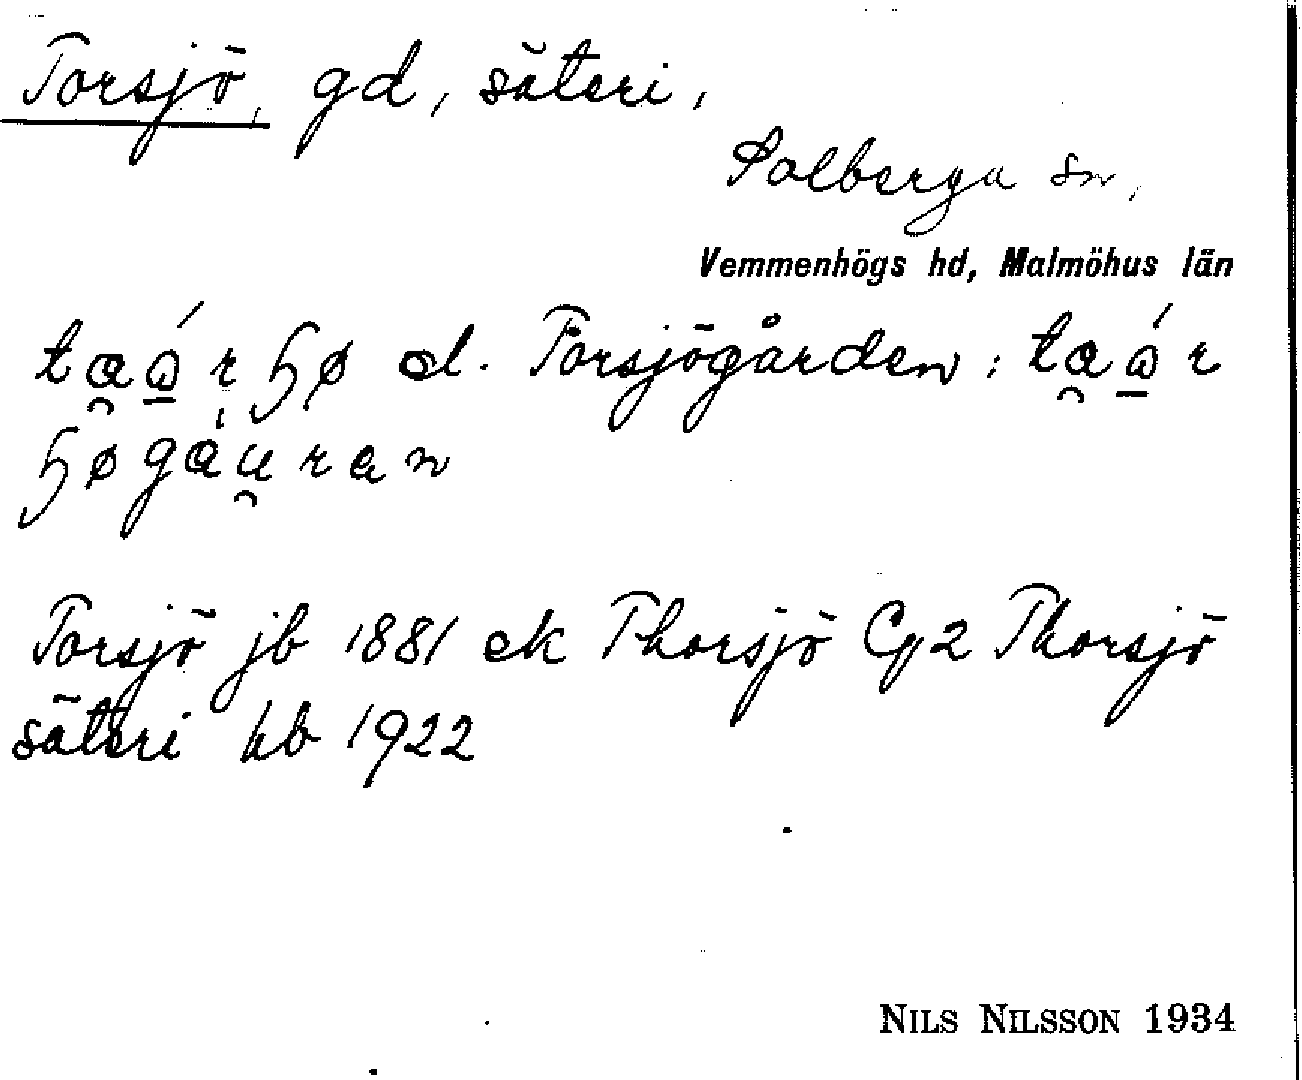 Torsjö, gd, säteri,
Solberga sn,
Vemmenhögs hd, Malmöhus län
el. Torsjögården:
Torsjö jb 1881 ek Thorsjö Gg2 Thorsjö
säteri kb 1922
NILS NILSSON 1934